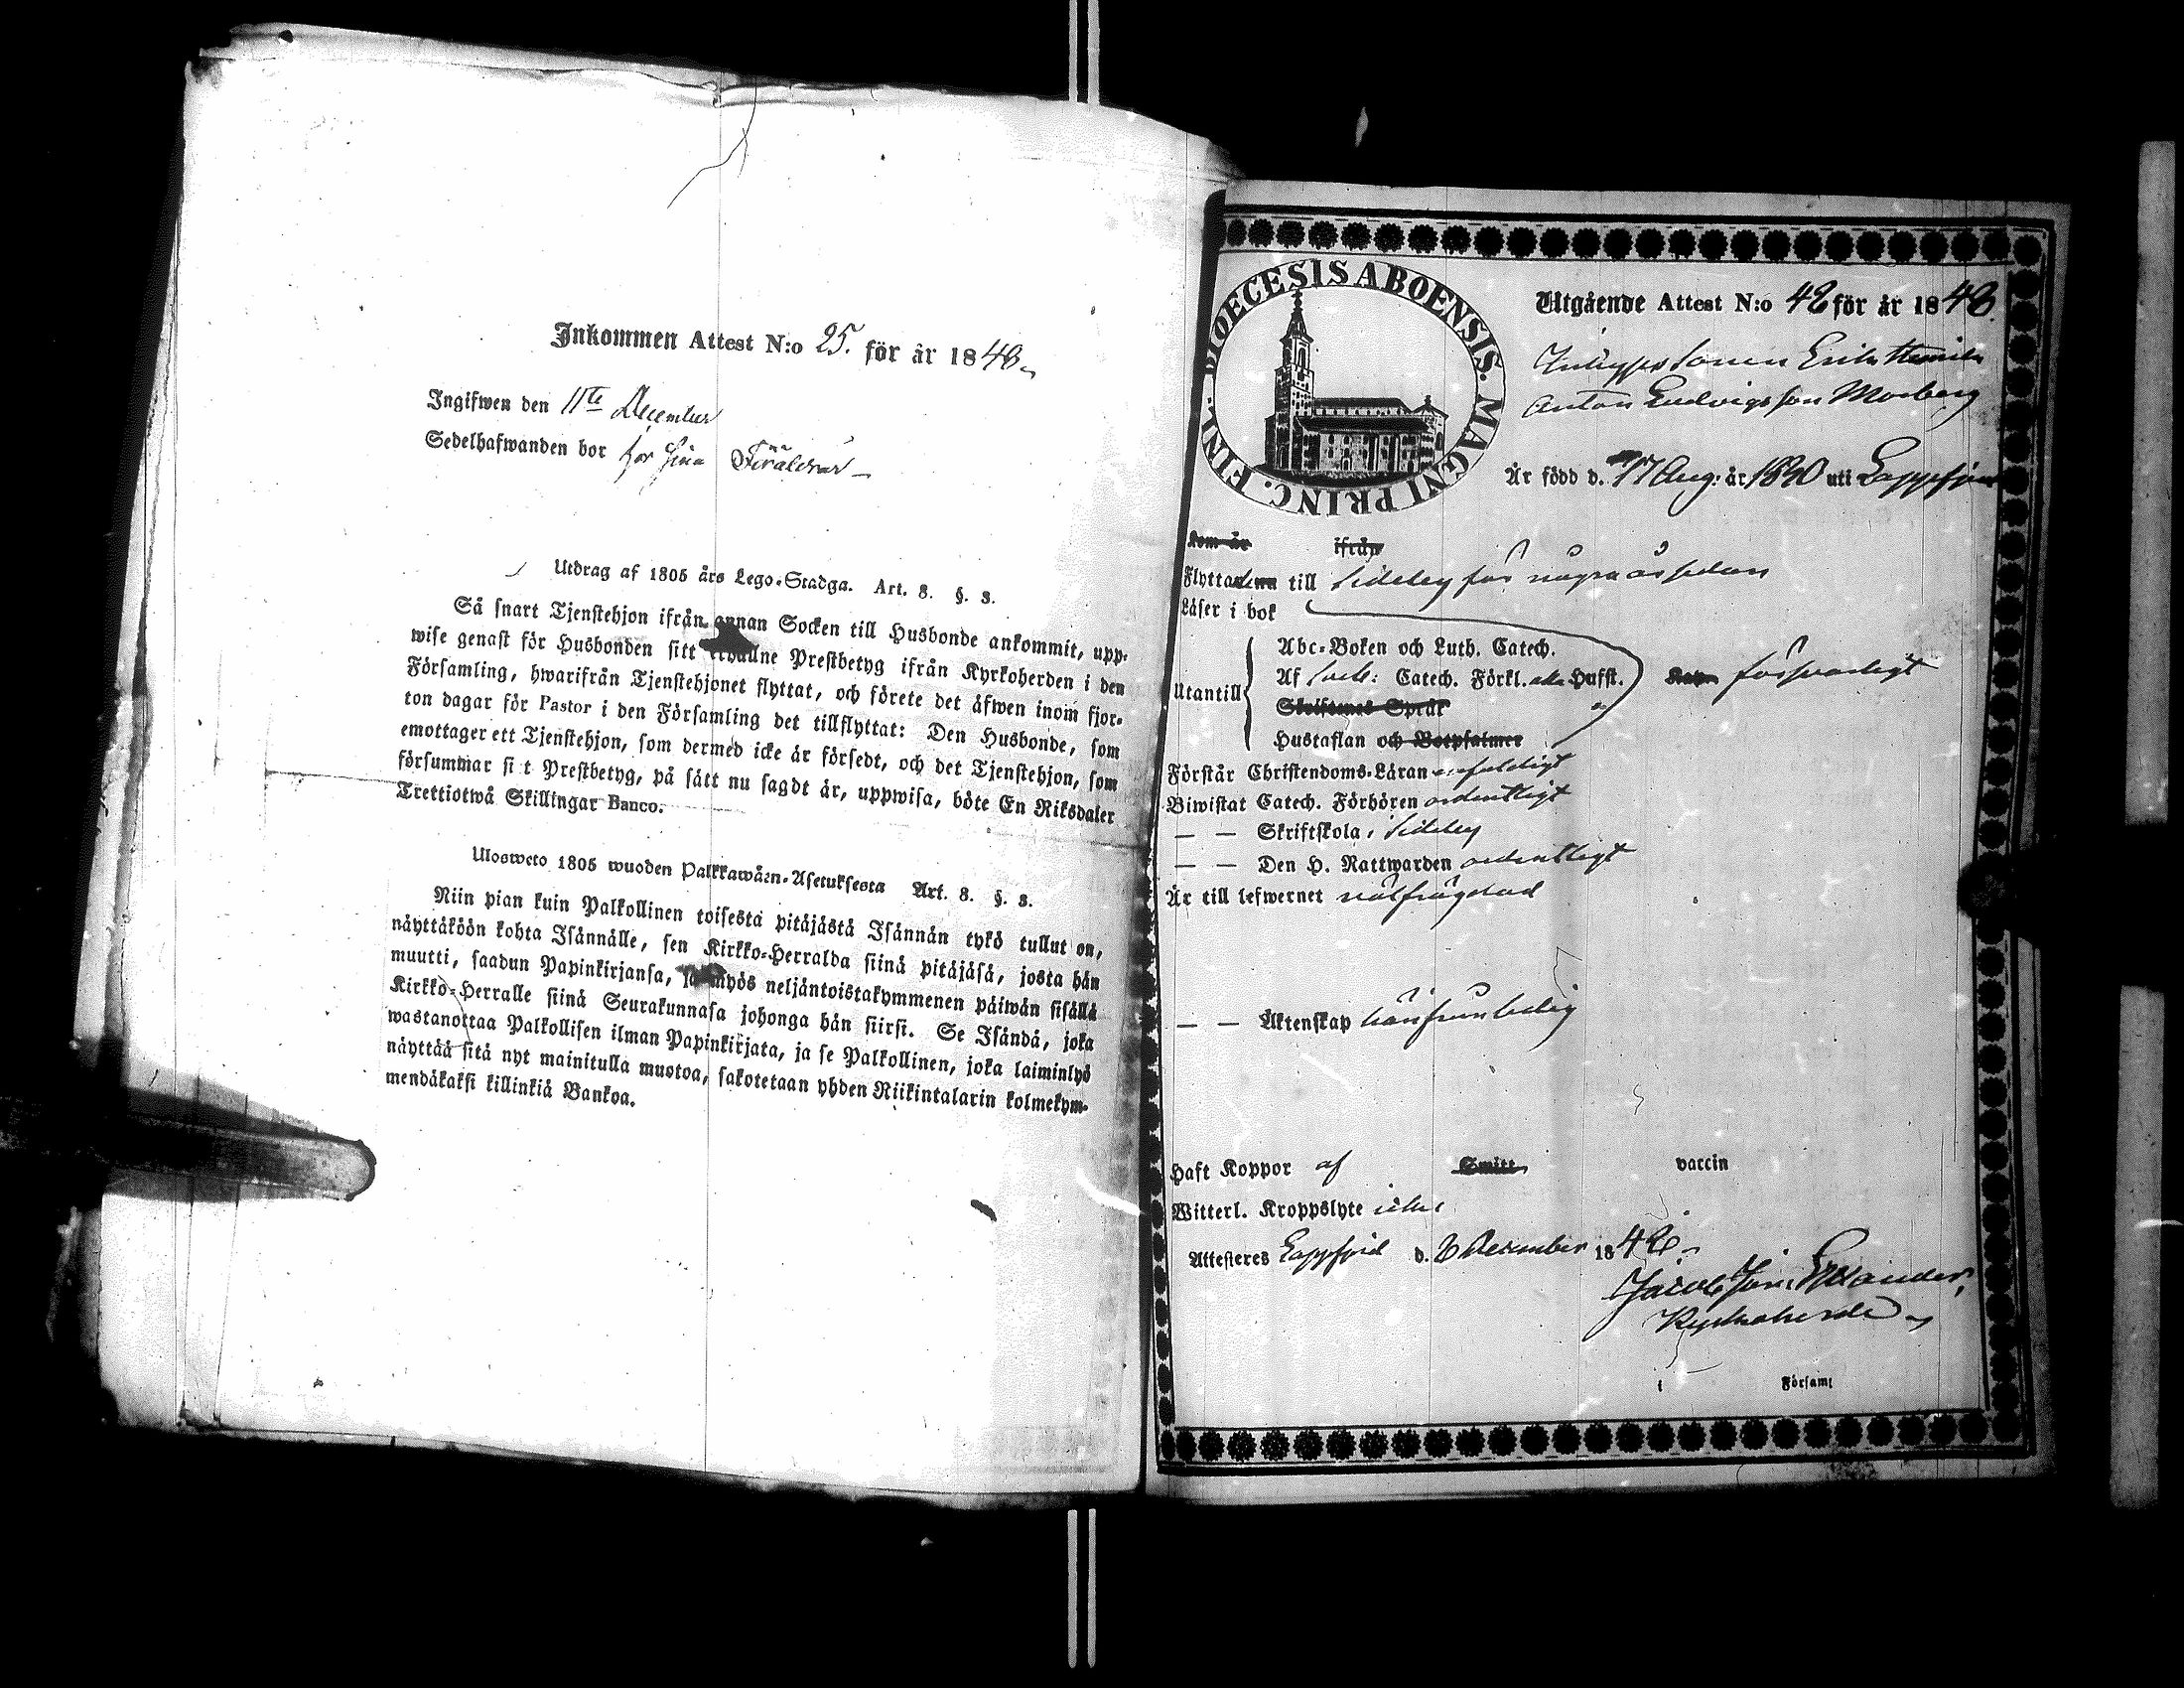 Inkommen Attest N:o 25. för år 1848
Ingifwen den 11te December
Sedelhafwanden bor hos sina Föräldrar
Utdrag af 1805 års Lego-Stadga. Art. 8. §. 3.
Så snart Tjenstehjon ifrån annan Socken till Husbonde ankommit, upp-
wise genast för Husbonden sitt erhållne Prestbetyg ifrån Kyrkoherden i den
Församling, hwarifrån Tjenstehjonet flyttat, och förete det äfwen inom fjor-
ton dagar för Pastor i den Församling det tillflyttat: Den Husbonde, som
emottager ett Tjenstehjon, som dermed icke är försedt, och det Tjenstehjon, som
försummar sitt Prestbetyg, på sätt nu sagdt är, uppwisa, böte En Riksdaler
Trettiotwå Skillingar Banco.
Ulosweto 1805 wuoden Palkkawäen-Asetuksesta Art. 8. §. 3.
Niin pian kuin Palkollinen toisesta pitäjästä Isännän tykö tullut on,
näyttäköön kohta Isännälle, sen Kirkko-Herralda siinä pitäjäsä, josta hän
muutti, saadun Papinkirjansa, ja myös neljäntoistakymmenen päiwän sisällä
Kirkko-Herralle siinä Seurakunnasa johonga hän siirsi. Se Isändä, joka
wastanottaa Palkollisen ilman Papinkirjata, ja se Palkollinen, joka laiminlyö
näyttää sitä nyt mainitulla muotoa, sakotetaan yhden Riikintalarin kolmekym-
mendäkaksi killinkiä Bankoa.
DIOECESIS ABOENSIS. MAGNI PRINC. FINL.
Utgående Attest N:o 42 för år 1848.
Inhyses Sonen Erik Henrik
Anton Ludvigsson Moberg
Är född d. 17 Aug: år 1830 uti Lappfjerd
kom år ifrån
Flyttade till Sideby för några år sedan
Läser i bok
Abc-Boken och Luth. Catech.
Utantill Af Sveb: Catech. Förkl. Hufst. försvarligt
Skriftenes Språk
Hustaflan och Botpsalmer
Förstår Christendoms-Läran enfaldigt
Biwistat Catech. Förhören ordentligt
— — Skriftskola i Sideby
— — Den H. Nattwarden ordentligt
Är till lefwernet välfrägdad
— — Äktenskap härifrån ledig
Haft Koppor af Smitt vaccin
Witterl. Kroppslyte icke
Attesteres Lappfjerd d. 6 December 1848
Jacob Joh:
Kyrkoherde
i Församl